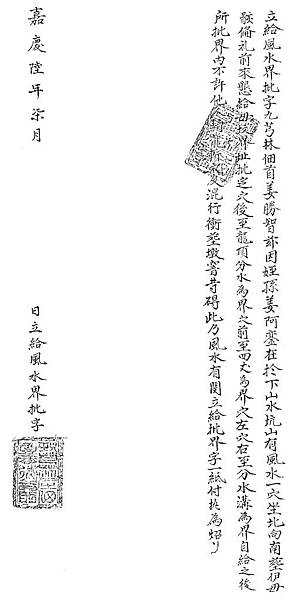 立給風水界批字九芎林佃首姜勝智茲因姪孫姜阿鑾在於下山水坑山有風水一穴坐北向南塟伊母
骸俻礼前來懇給毋址界址批定穴後至龍頂分水為界穴前至四丈為界穴左穴右至分水溝為界自給之後
所批界內不許他人混行衝塟墩窨苛碍此乃風水有関立給批界字一紙付执為炤
嘉慶陸年柒月
日立給風水界批字